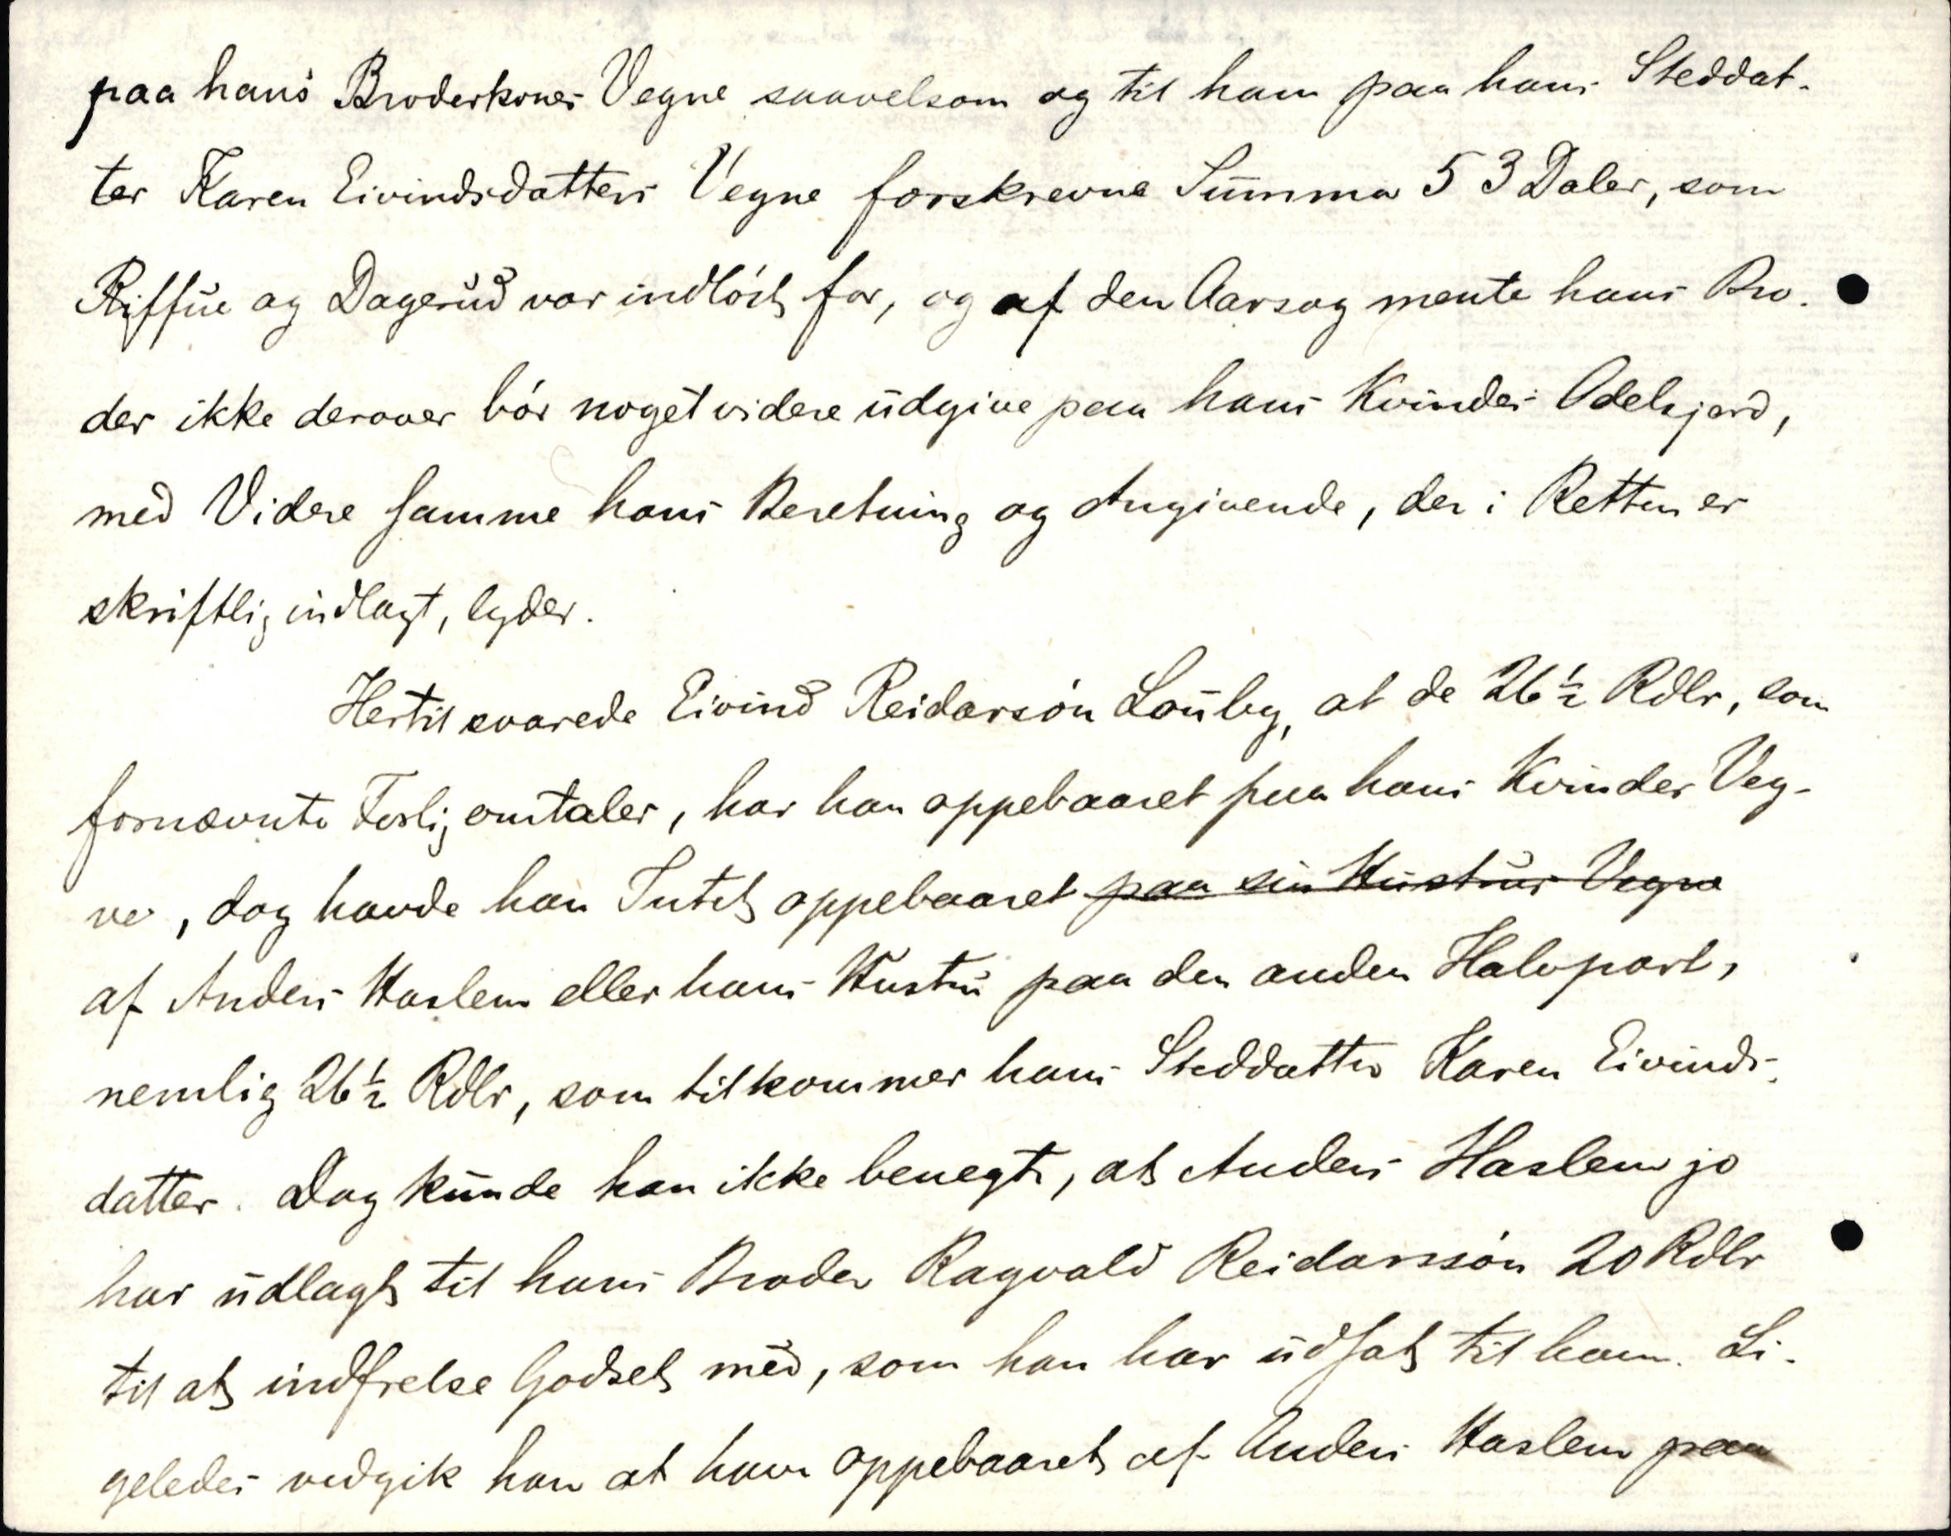 paa hans Broderkones Vegne saavelsom og til ham paa hans Steddat-
ter Karen Eivindsdatters Vegne forskrevne Summa 53 Daler, som
Riffue og Dagerud var indløst for, og af den Aarsag mente hans Bro-
der ikke derover bør noget videre udgive paa hans Kvindes Odelsjord,
med Videre samme hans Beretning og Angivende, der i Retten er
skriftlig indlagt, lyder.
Hertil svarede Eivind Reidarsøn Louby, at de 26½ Rdlr, som
fornævnte Forlig omtaler, har han oppebaaret paa hans Kvindes Veg-
ne, dog havde han Intet oppebaaret paa sin Hustrus Vegne
af Anders Haslem eller hans Hustru paa den anden Halvpart,
nemlig 26½ Rdlr, som tilkommer hans Steddatter Karen Eivinds-
datter. Dog kunde han ikke benegte, at Anders Haslem jo
har udlagt til hans Broder Ragvald Reidarssøn 20 Rdlr
til at indfrelse Godset med, som han har udsat til ham. Li-
geledes vedgik han at have oppebaaret af Anders Haslem paa